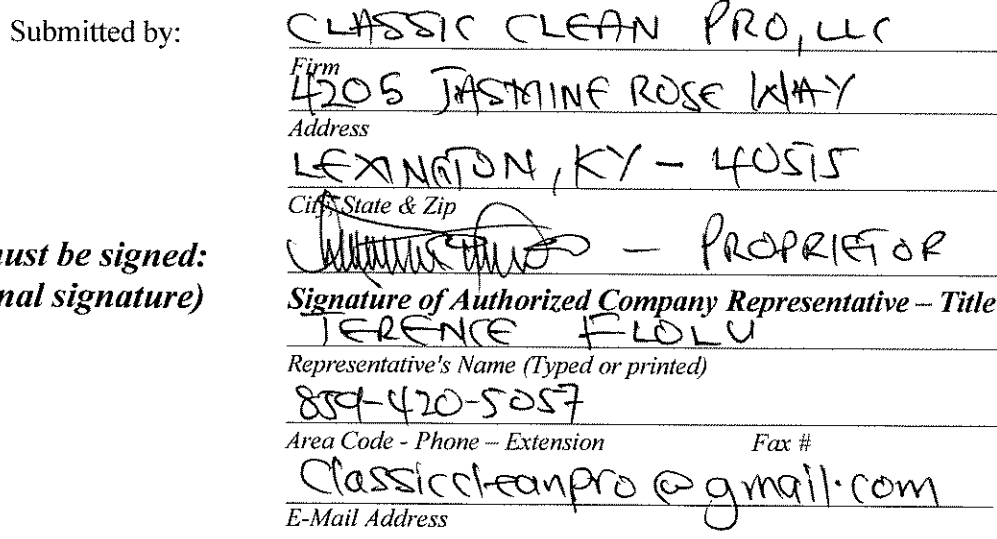 Submitted by: CLASSIC CLEAN PRO, LLC
Firm
4205 JASMINE ROSE WAY
Address
LEXINGTON, KY - 40515
City, State & Zip
must be signed: — PROPRIETOR
nal signature) Signature of Authorized Company Representative – Title
TERENCE ELOLU
Representative's Name (Typed or printed)
859-420-5057
Area Code - Phone – Extension Fax #
Classiccleanpro@gmail.com
E-Mail Address